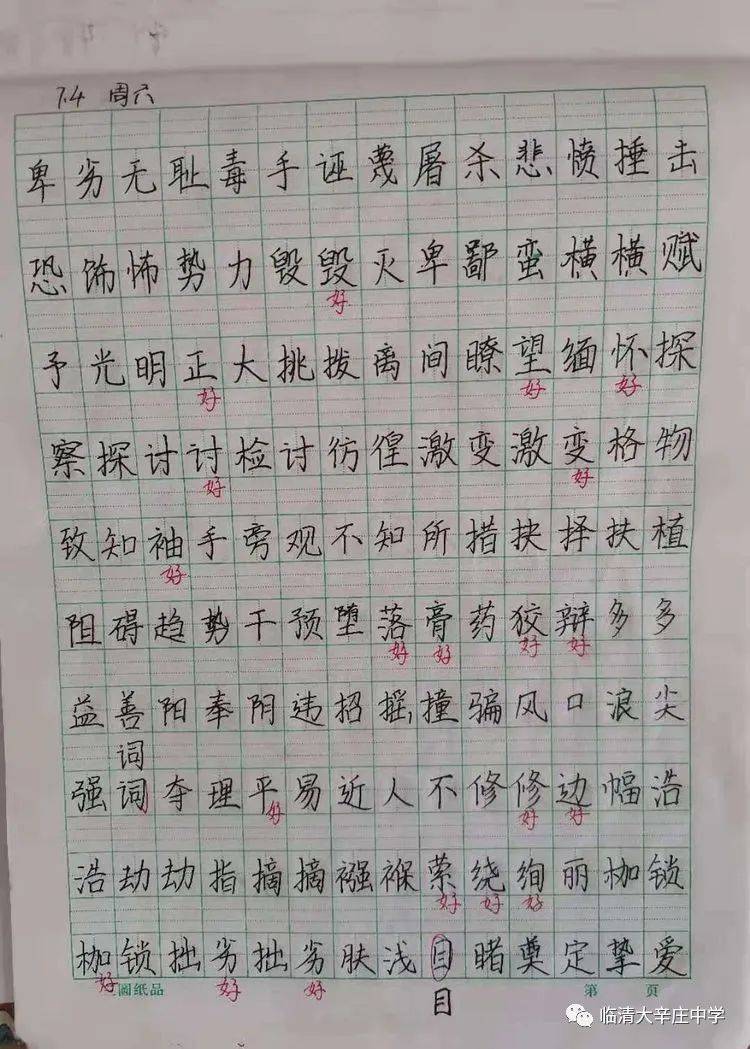 7.4 周六
卑劣无耻毒手诬蔑屠杀悲愤捶击
恐饰怖势力毁毁灭卑鄙蛮横横赋
好
予光明正大挑拨离间瞭望缅怀探
好 好 好
察探讨讨检讨彷徨激变激变格物
好 好
致知袖手旁观不知所措抉择扶植
好
阻碍趋势干预堕落膏药狡辩多多
好 好 好 好
益善阳奉阴违招摇撞骗风口浪尖
词
强词夺理平易近人不修修边幅浩
好 好 好
浩劫劫指摘摘襁褓萦绕绚丽枷锁
好 好 好
枷锁拙劣拙劣肤浅目睹奠定挚爱
好 好 好 目
圖纸品 第 页
临清大辛庄中学